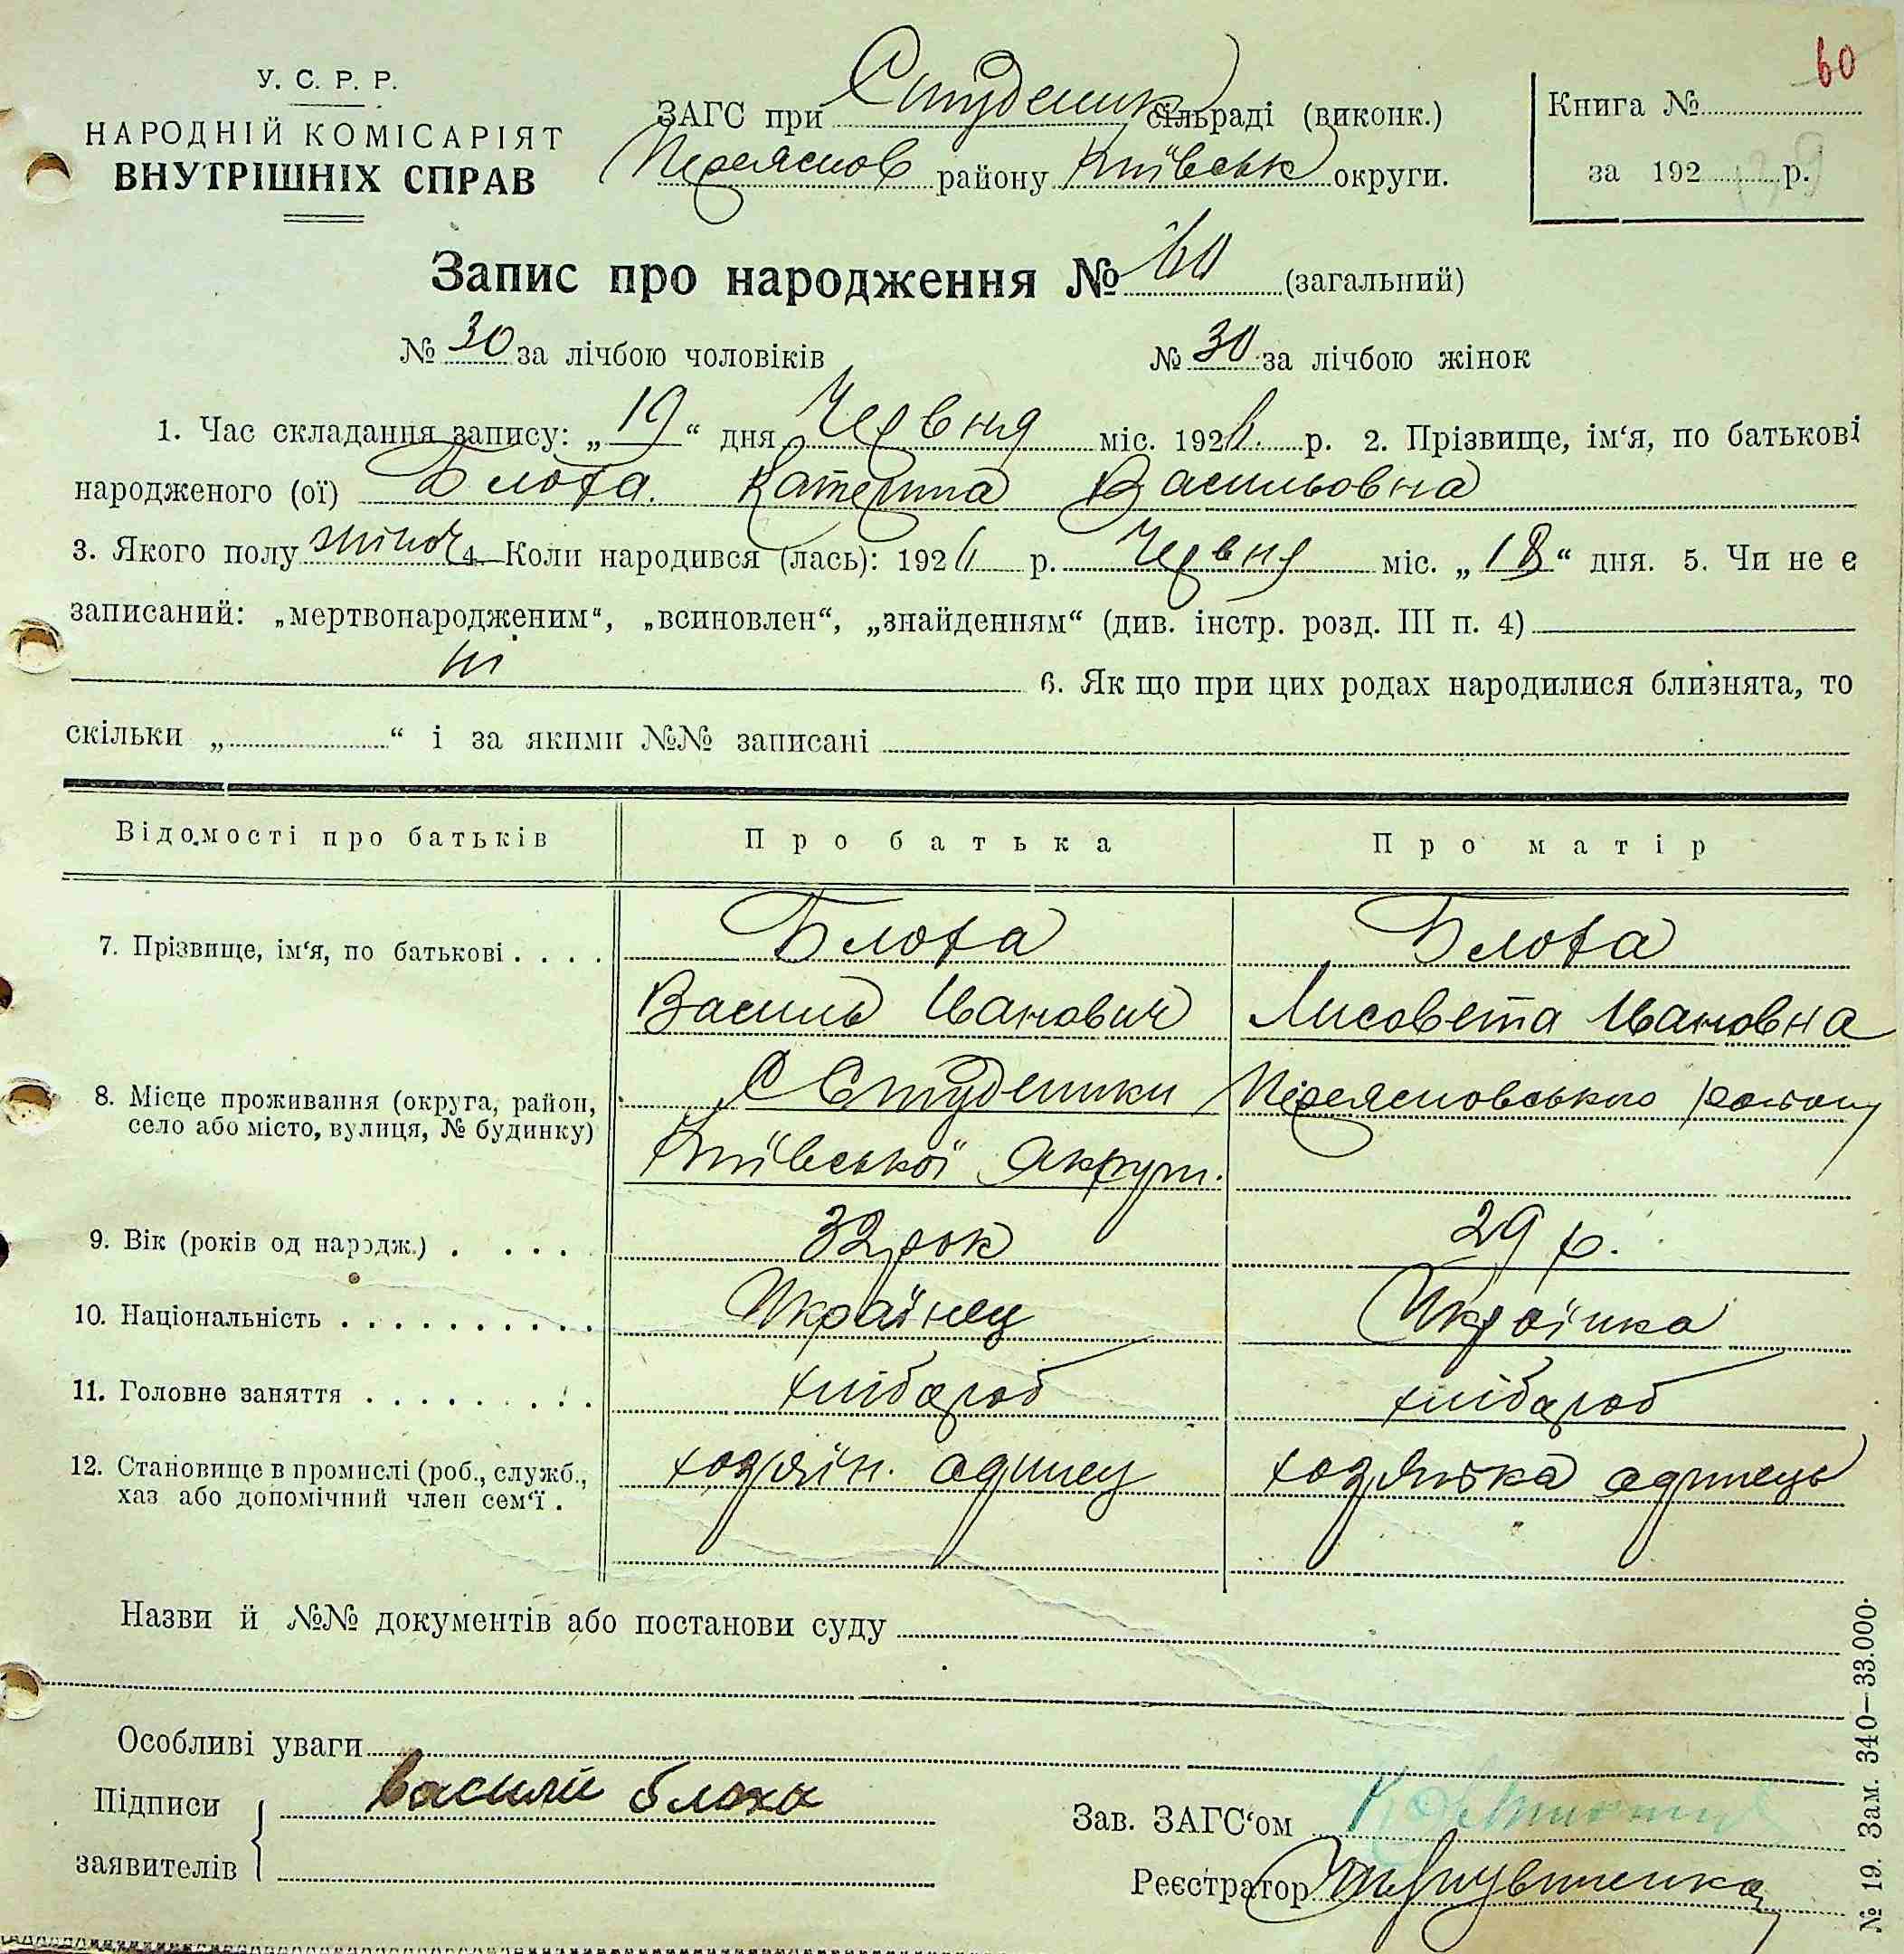 60
У. С. Р. Р.
НАРОДНІЙ КОМІСАРІЯТ
ВНУТРІШНІХ СПРАВ
ЗАГС при Студеник сільраді (виконк.)
Переяслов району Київськ округи.
Книга №
за 192 р.
Запис про народження № 60 (загальний)
№ 30 за лічбою чоловіків № 30 за лічбою жінок
1. Час складання запису: „19“ дня Червня міс. 1926 р. 2. Прізвище, ім‘я, по батькові
народженого (ої) Блоха. Катерина Васильовна
3. Якого полу жіноч 4. Коли народився (лась): 1926 р. Червня міс. „18“ дня. 5. Чи не є
записаний: „мертвонародженим“, „всиновлен“, „знайденням“ (див. інстр. розд. III п. 4)
ні 6. Як що при цих родах народилися близнята, то
скільки „ “ і за якими №№ записані
Відомості про батьків Про батька Про матір
7. Прізвище, ім‘я, по батькові . . . . Блоха Блоха
Василь Иванович Лисовета Ивановна
8. Місце проживання (округа, район, село або місто, вулиця, № будинку) С Студеники Переясловського району
Київської Акруги.
9. Вік (років од народж.) . . . . 32 рок 29 р.
10. Національність . . . . . . . . . . Украінец Украінка
11. Головне заняття . . . . . . . . . хлібароб хлібароб
12. Становище в промислі (роб., служб., хаз або допомічний член сем‘ї . хозяїн. адинец хозяйка адинець
Назви й №№ документів або постанови суду
Особливі уваги
Підписи заявителів василій блоха
Зав. ЗАГС‘ом
Реєстратор
№ 19. Зам. 340—33.000.